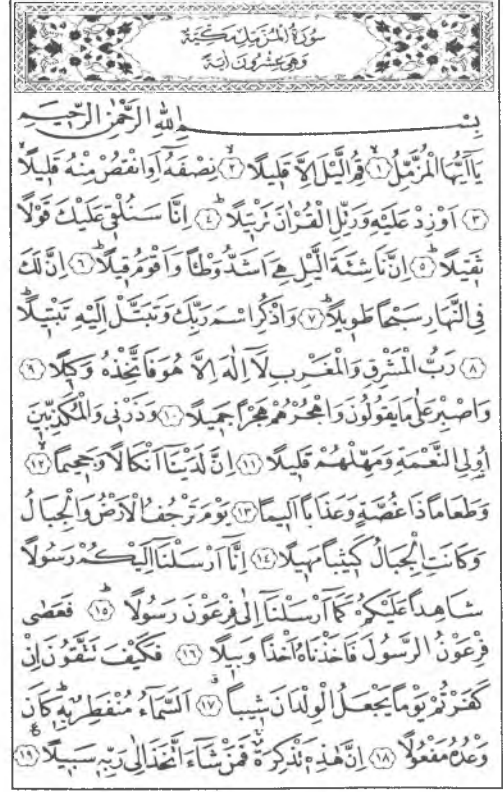 سُورَةُ الْمُزَّمِّلِ مَكِّيَّةٌ
وَهِيَ عِشْرُونَ اٰيَةً
بِسْمِ اللّٰهِ الرَّحْمٰنِ الرَّحِيمِ
يَٓا اَيُّهَا الْمُزَّمِّلُۙ ﴿١﴾ قُمِ الَّيْلَ اِلَّا قَلِيلًاۙ ﴿٢﴾ نِصْفَهُٓ اَوِ انْقُصْ مِنْهُ قَلِيلًاۙ
﴿٣﴾ اَوْ زِدْ عَلَيْهِ وَرَتِّلِ الْقُرْاٰنَ تَرْتِيلًاۜ ﴿٤﴾ اِنَّا سَنُلْقِي عَلَيْكَ قَوْلًا
ثَقِيلًاۜ ﴿٥﴾ اِنَّ نَاشِئَةَ الَّيْلِ هِيَ اَشَدُّ وَطْـًٔا وَاَقْوَمُ قِيلًاۜ ﴿٦﴾ اِنَّ لَكَ
فِي النَّهَارِ سَبْحًا طَوِيلًاۜ ﴿٧﴾ وَاذْكُرِ اسْمَ رَبِّكَ وَتَبَتَّلْ اِلَيْهِ تَبْتِيلًاۜ
﴿٨﴾ رَبُّ الْمَشْرِقِ وَالْمَغْرِبِ لَٓا اِلٰهَ اِلَّا هُوَ فَاتَّخِذْهُ وَكِيلًا ﴿٩﴾
وَاصْبِرْ عَلٰى مَا يَقُولُونَ وَاهْجُرْهُمْ هَجْرًا جَمِيلًا ﴿١٠﴾ وَذَرْنِي وَالْمُكَذِّبِينَ
اُولِي النَّعْمَةِ وَمَهِّلْهُمْ قَلِيلًا ﴿١١﴾ اِنَّ لَدَيْنَٓا اَنْكَالًا وَجَحِيمًاۙ ﴿١٢﴾
وَطَعَامًا ذَا غُصَّةٍ وَعَذَابًا اَلِيمًا ﴿١٣﴾ يَوْمَ تَرْجُفُ الْاَرْضُ وَالْجِبَالُ
وَكَانَتِ الْجِبَالُ كَثِيبًا مَهِيلًا ﴿١٤﴾ اِنَّٓا اَرْسَلْنَٓا اِلَيْكُمْ رَسُولًا
شَاهِدًا عَلَيْكُمْ كَمَٓا اَرْسَلْنَٓا اِلٰى فِرْعَوْنَ رَسُولًاۜ ﴿١٥﴾ فَعَصٰى
فِرْعَوْنُ الرَّسُولَ فَاَخَذْنَاهُ اَخْذًا وَبِيلًا ﴿١٦﴾ فَكَيْفَ تَتَّقُونَ اِنْ
كَفَرْتُمْ يَوْمًا يَجْعَلُ الْوِلْدَانَ شِيبًا ﴿١٧﴾ اَلسَّمَٓاءُ مُنْفَطِرٌ بِهِۜ كَانَ
وَعْدُهُ مَفْعُولًا ﴿١٨﴾ اِنَّ هٰذِهِ تَذْكِرَةٌۚ فَمَنْ شَٓاءَ اتَّخَذَ اِلٰى رَبِّهِ سَبِيلًا ﴿١٩﴾